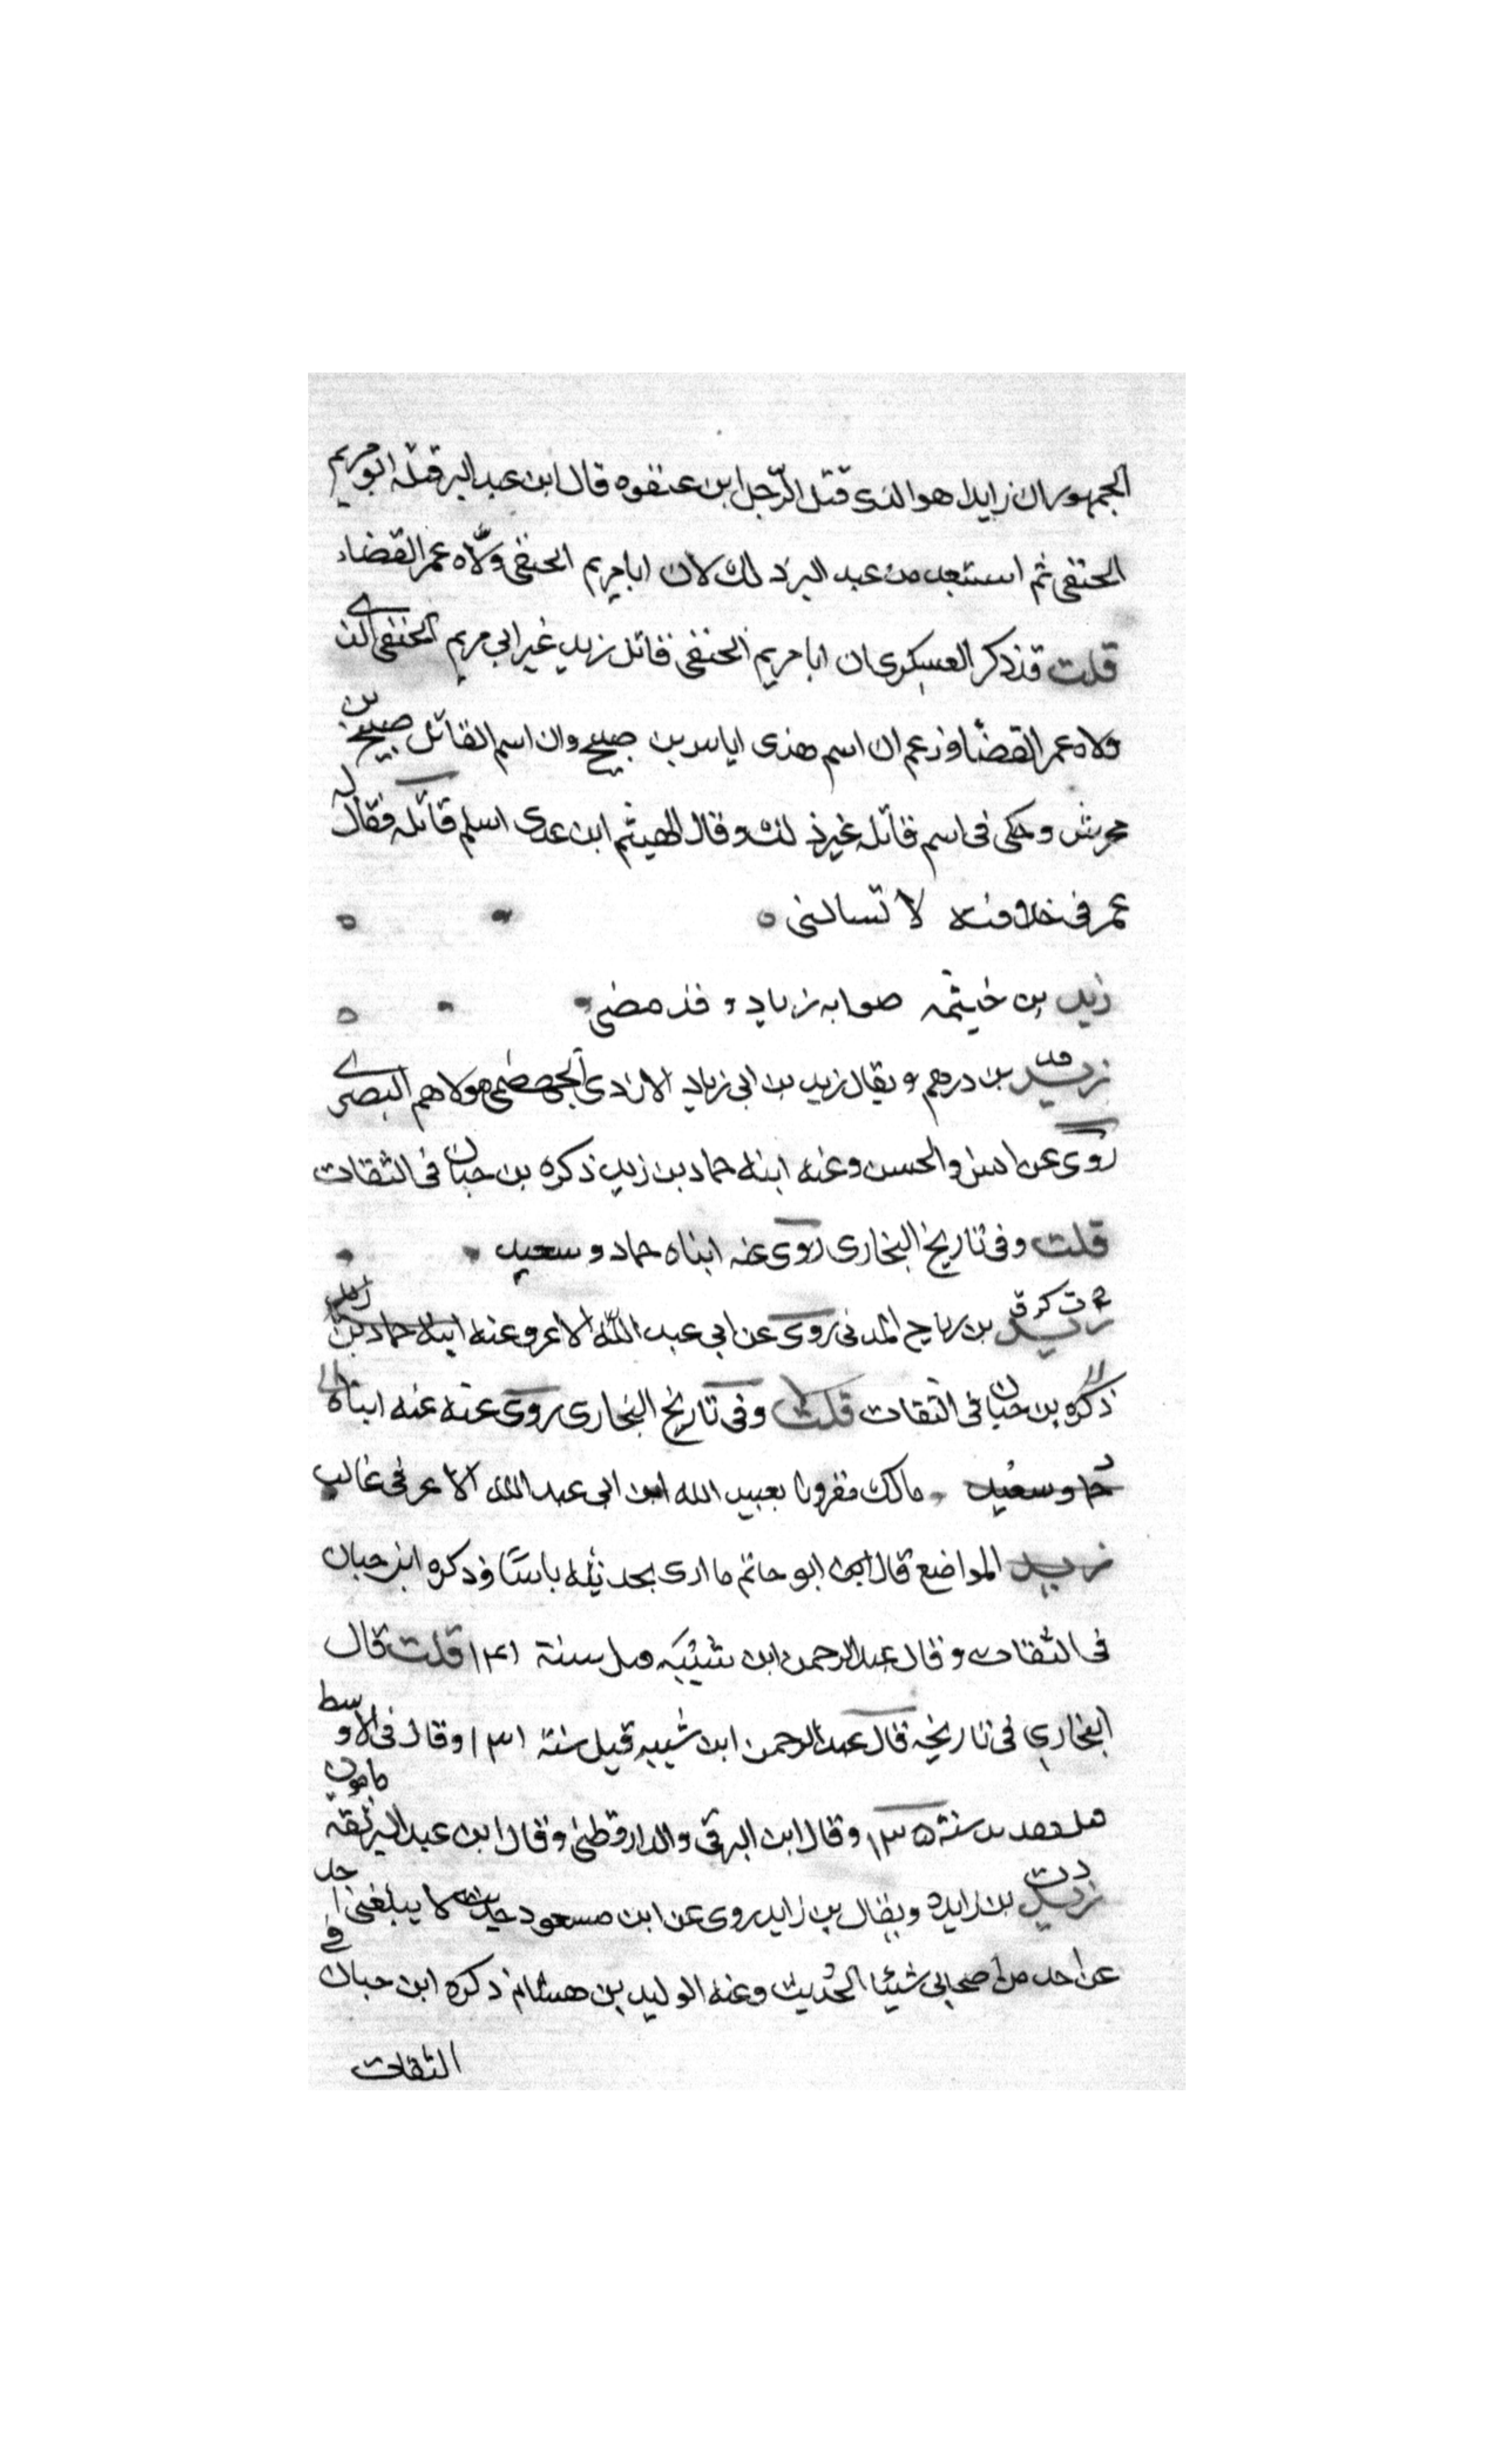 الجمهور ان زايدا هو الذى قتل الرّجل ابن عنفوه قال ابن عبد البر قتله ابو مريم
الحنفى ثم استبعد من عبد البر ذلك لان ابا مريم الحنفى ولّاه عمر القضاء
قلت قد ذكر العسكرى ان ابا مريم الحنفى قاتل زيد غير ابي مريم الحنفى الذى
ولاه عمر القضا وزعم ان اسم هذى اياس بن صبيح وان اسم القاتل صبيح بن
محرش وحكى فى اسم قاتله غير ذلك وقال الهيثم ابن عدى اسلم قاتله فقال له
عمر فى خلافته لا تساكنى
زيد بن خيثمه صوابه زياد وقد مضى
زيد بن درهم ويقال زيد بن ابى زياد الازدى الجهضمى مولاهم البصرى
روى عن انس والحسن وعنه ابنه حماد بن زيد ذكره بن حبان فى الثقات
قلت وفى تاريخ البخارى روى عنه ابناه حماد وسعيد
خ ت كن ق زيد بن رباح المدنى روى عن ابي عبد الله الاغر وعنه ابنه حماد بن زيد
ذكره بن حبان فى الثقات قلت وفى تاريخ البخارى روى عنه عنه ابناه
حماد وسعيد مالك مقرونا بعبيد الله ابن ابى عبد الله الاغر فى غالب
زيد المواضع قال ابن ابو حاتم ما ارى بحديثه باسًا وذكره ابن حبان
فى الثقات وقال عبد الرحمن ابن شيبه قتل سنة ١٣١ قلت قال
البخاري فى تاريخه قال عبد الرحمن ابن شيبه قتل سنة ١٣١ وقال فى الاوسط
سنة ١٣٥ وقال ابن البرقى والدارقطنى وقال ابن عبد البر ثقة مامون
د ت زيد بن زايده ويقال بن زايد روى عن ابن مسعود حديث لا يبلغنى احد
عن احد من اصحابي شيئا الحديث وعنه الوليد بن هشام ذكره ابن حبان فى
الثقات